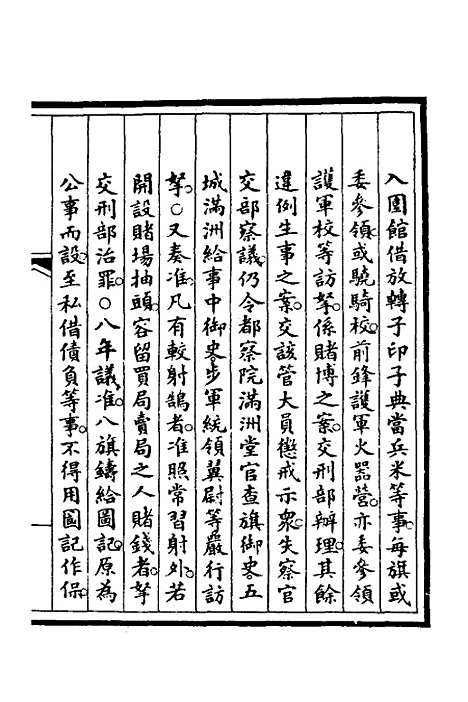 入園館借放轉子印子典當兵米等事每旗或
委參領或驍騎校前鋒護軍火器營亦委參領
護軍校等訪拏係賭博之案交刑部辦理其餘
違例生事之案交該管大員懲戒示衆失察官
交部察議仍令都察院滿洲堂官查旗御史五
城滿洲給事中御史步軍統領翼尉等嚴行訪
拏○又奏准凡有較射鵠者准照常習射外若
開設賭場抽頭容留買局賣局之人賭錢者拏
交刑部治罪○八年議准八旗鑄給圖記原為
公事而設至私借債負等事不得用圖記作保